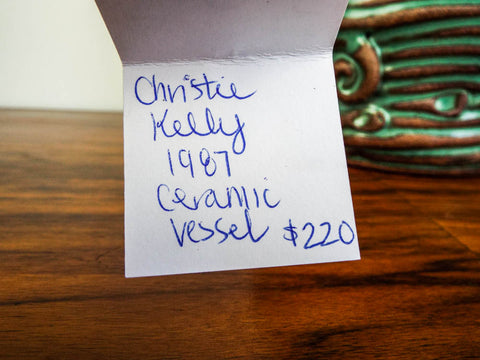 Christie
Kelly
1987
Ceramic
Vessel $220